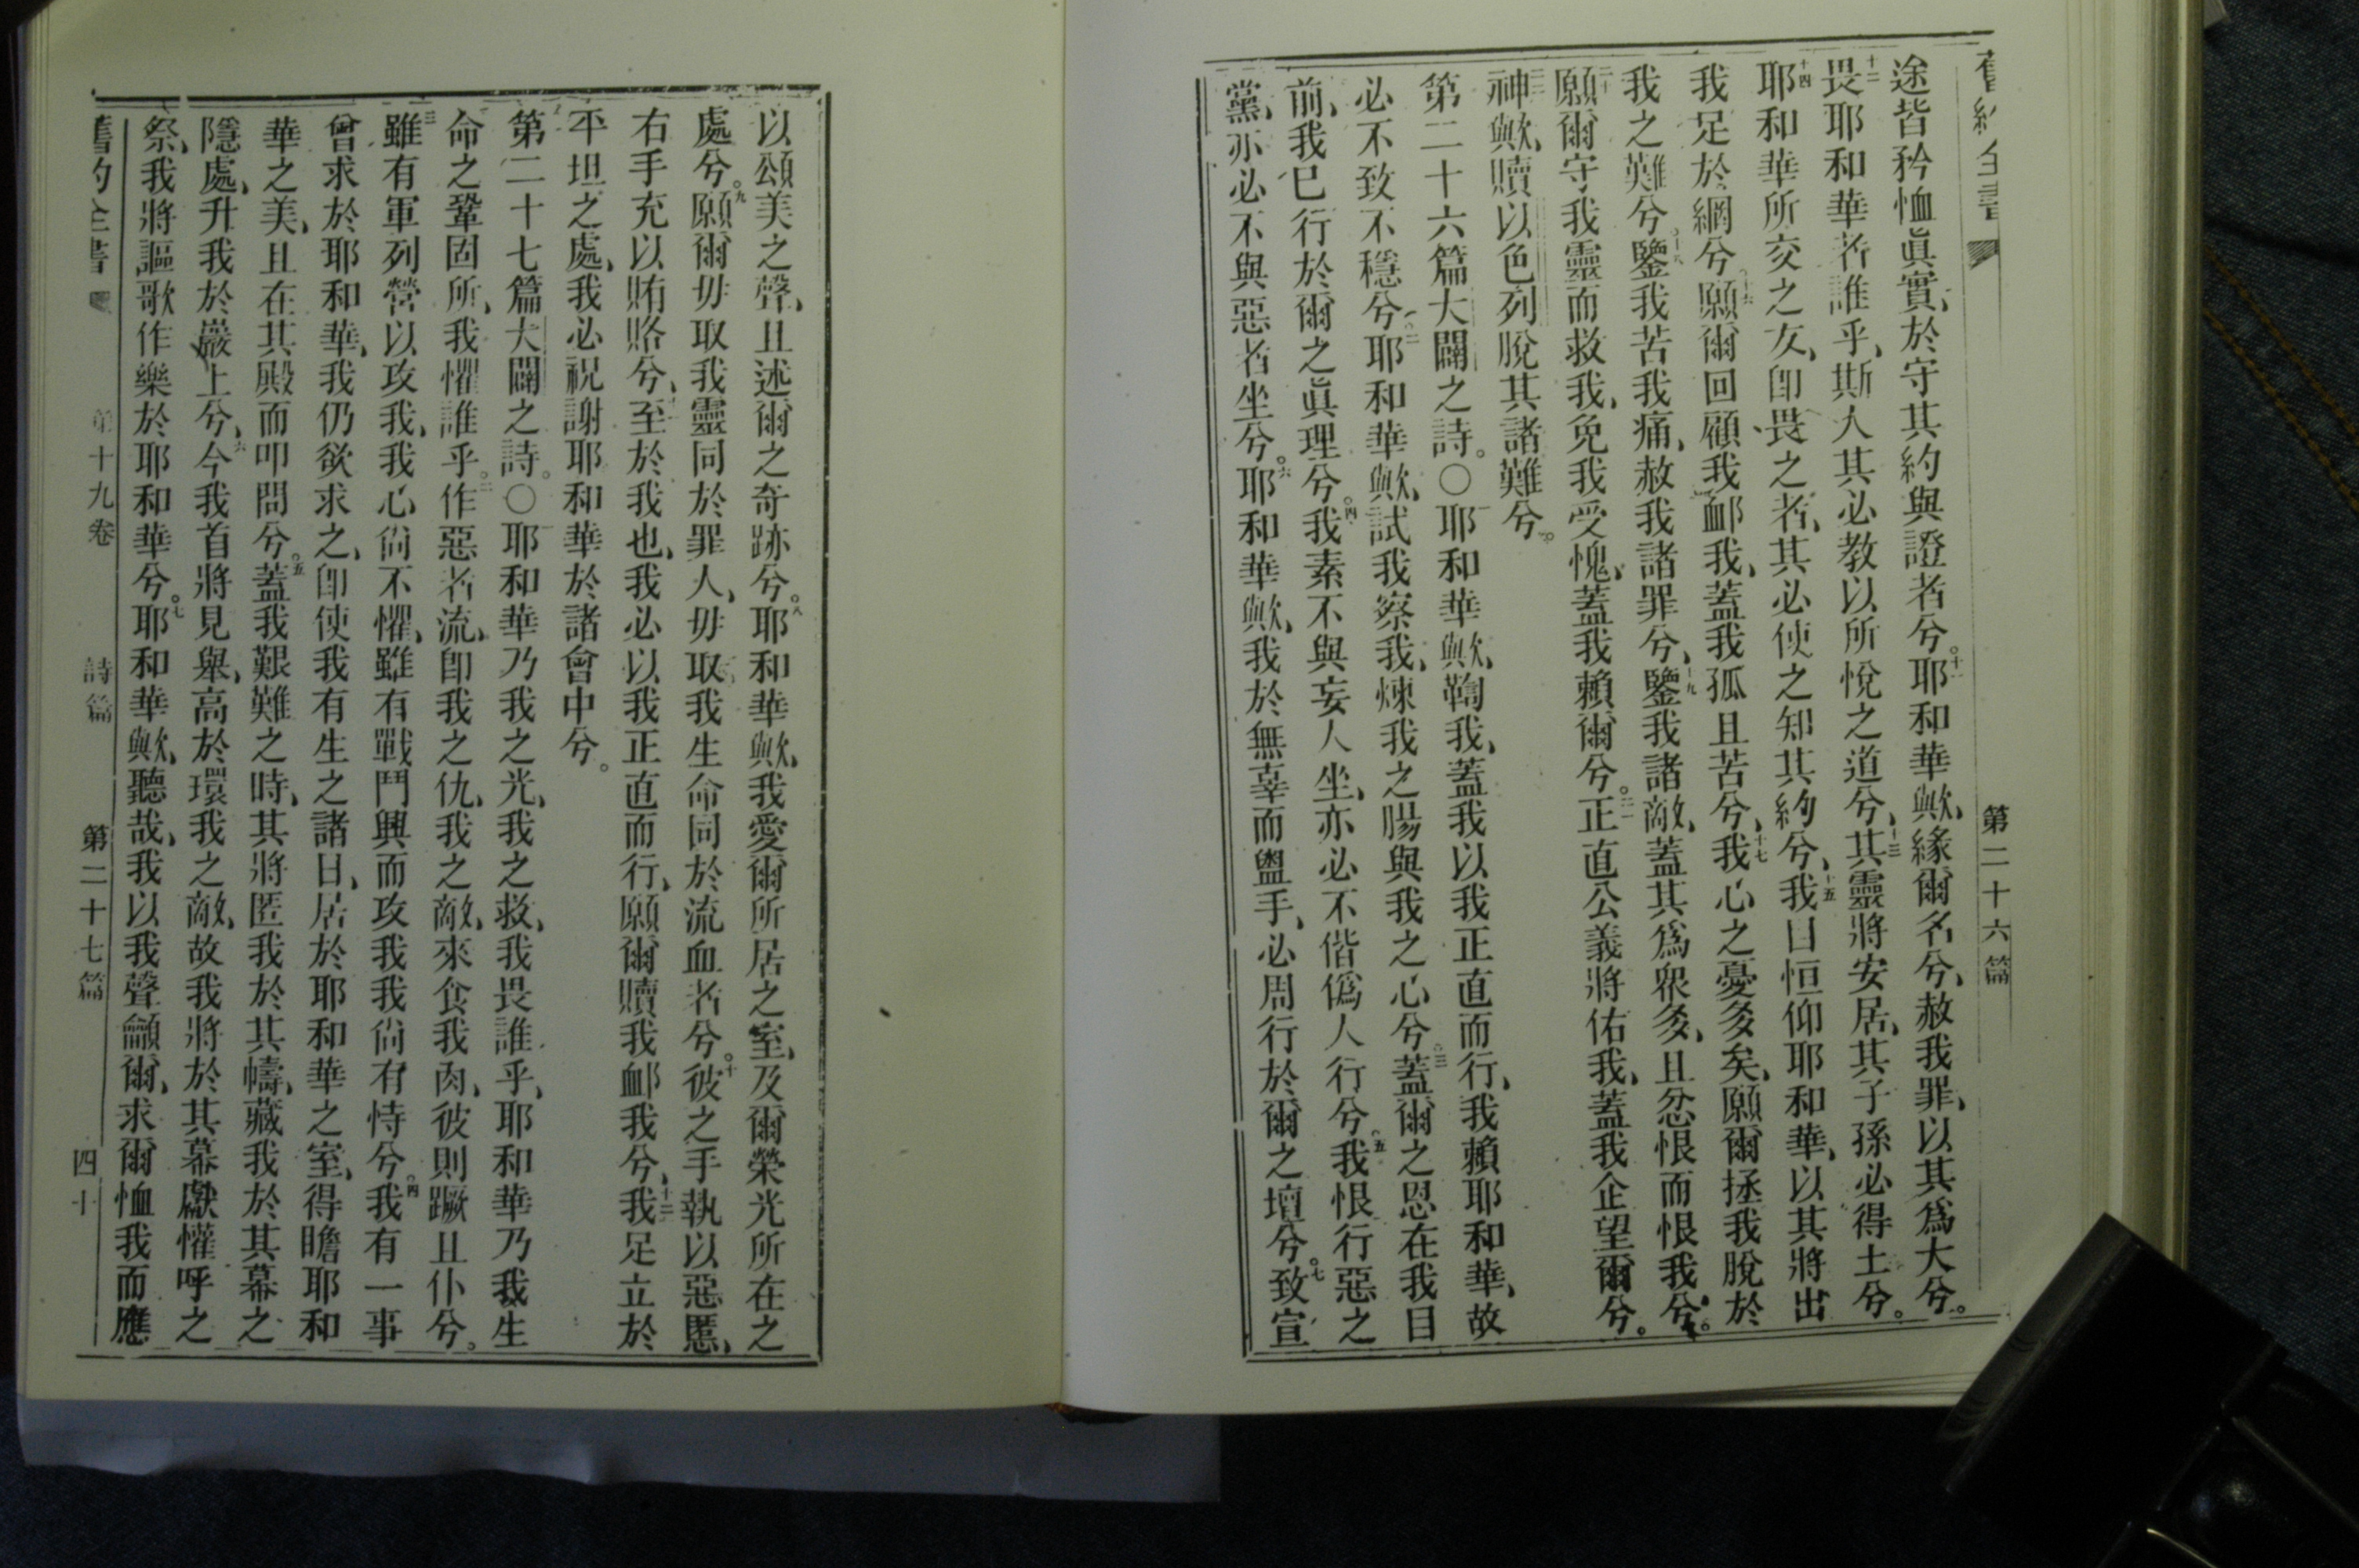 舊約全書 第二十六篇
途皆矜恤眞實、於守其約與證者兮。十一耶和華歟、緣爾名兮、赦我罪、以其爲大兮。
十二畏耶和華者誰乎、斯人其必教以所悅之道兮、十三其靈將安居、其子孫必得土兮。
十四耶和華所交之友、卽畏之者、其必使之知其約兮、十五我目恒仰耶和華、以其將出
我足於網兮。十六願爾回顧我、衈我、蓋我孤且苦兮、十七我心之憂多矣、願爾拯我脫於
我之難兮。十八鑒我苦我痛、赦我諸罪兮、十九鑒我諸敵、蓋其爲衆多、且忿恨而恨我兮。
二十願爾守我靈而救我、免我受愧、蓋我賴爾兮。二一正直公義將佑我、蓋我企望爾兮。
二二神歟、贖以色列脫其諸難兮。
第二十六篇大闢之詩。〇一耶和華歟、鞫我、蓋我以我正直而行、我賴耶和華、故
必不致不穩兮。二耶和華歟、試我察我、煉我之腸與我之心兮。三蓋爾之恩在我目
前、我已行於爾之眞理兮。四我素不與妄人坐、亦必不偕僞人行兮。五我恨行惡之
黨、亦必不與惡者坐兮。六耶和華歟、我於無辜而盥手、必周行於爾之壇兮。七致宣
以頌美之聲、且述爾之奇跡兮。八耶和華歟、我愛爾所居之室、及爾榮光所在之
處兮。九願爾毋取我靈同於罪人、毋取我生命同於流血者兮。十彼之手執以惡慝、
右手充以賄賂兮、十一至於我也、我必以我正直而行、願爾贖我衈我兮、十二我足立於
平坦之處、我必祝謝耶和華於諸會中兮。
第二十七篇大闢之詩。〇一耶和華乃我之光、我之救、我畏誰乎、耶和華乃我生
命之鞏固所、我懼誰乎。二作惡者流、卽我之仇、我之敵、來食我肉、彼則蹶且仆兮。
三雖有軍列營以攻我、我心尙不懼、雖有戰鬥興而攻我、我尙有恃兮。四我有一事
曾求於耶和華、我仍欲求之、卽使我有生之諸日、居於耶和華之室、得瞻耶和
華之美、且在其殿而叩問兮。五蓋我艱難之時、其將匿我於其幬、藏我於其幕之
隱處、升我於巖上兮、六今我首將見舉、高於環我之敵、故我將於其幕獻懽呼之
祭、我將謳歌作樂於耶和華兮。七耶和華歟、聽哉、我以我聲龥爾、求爾恤我而應
舊約全書 第十九卷 詩篇 第二十七篇 四十